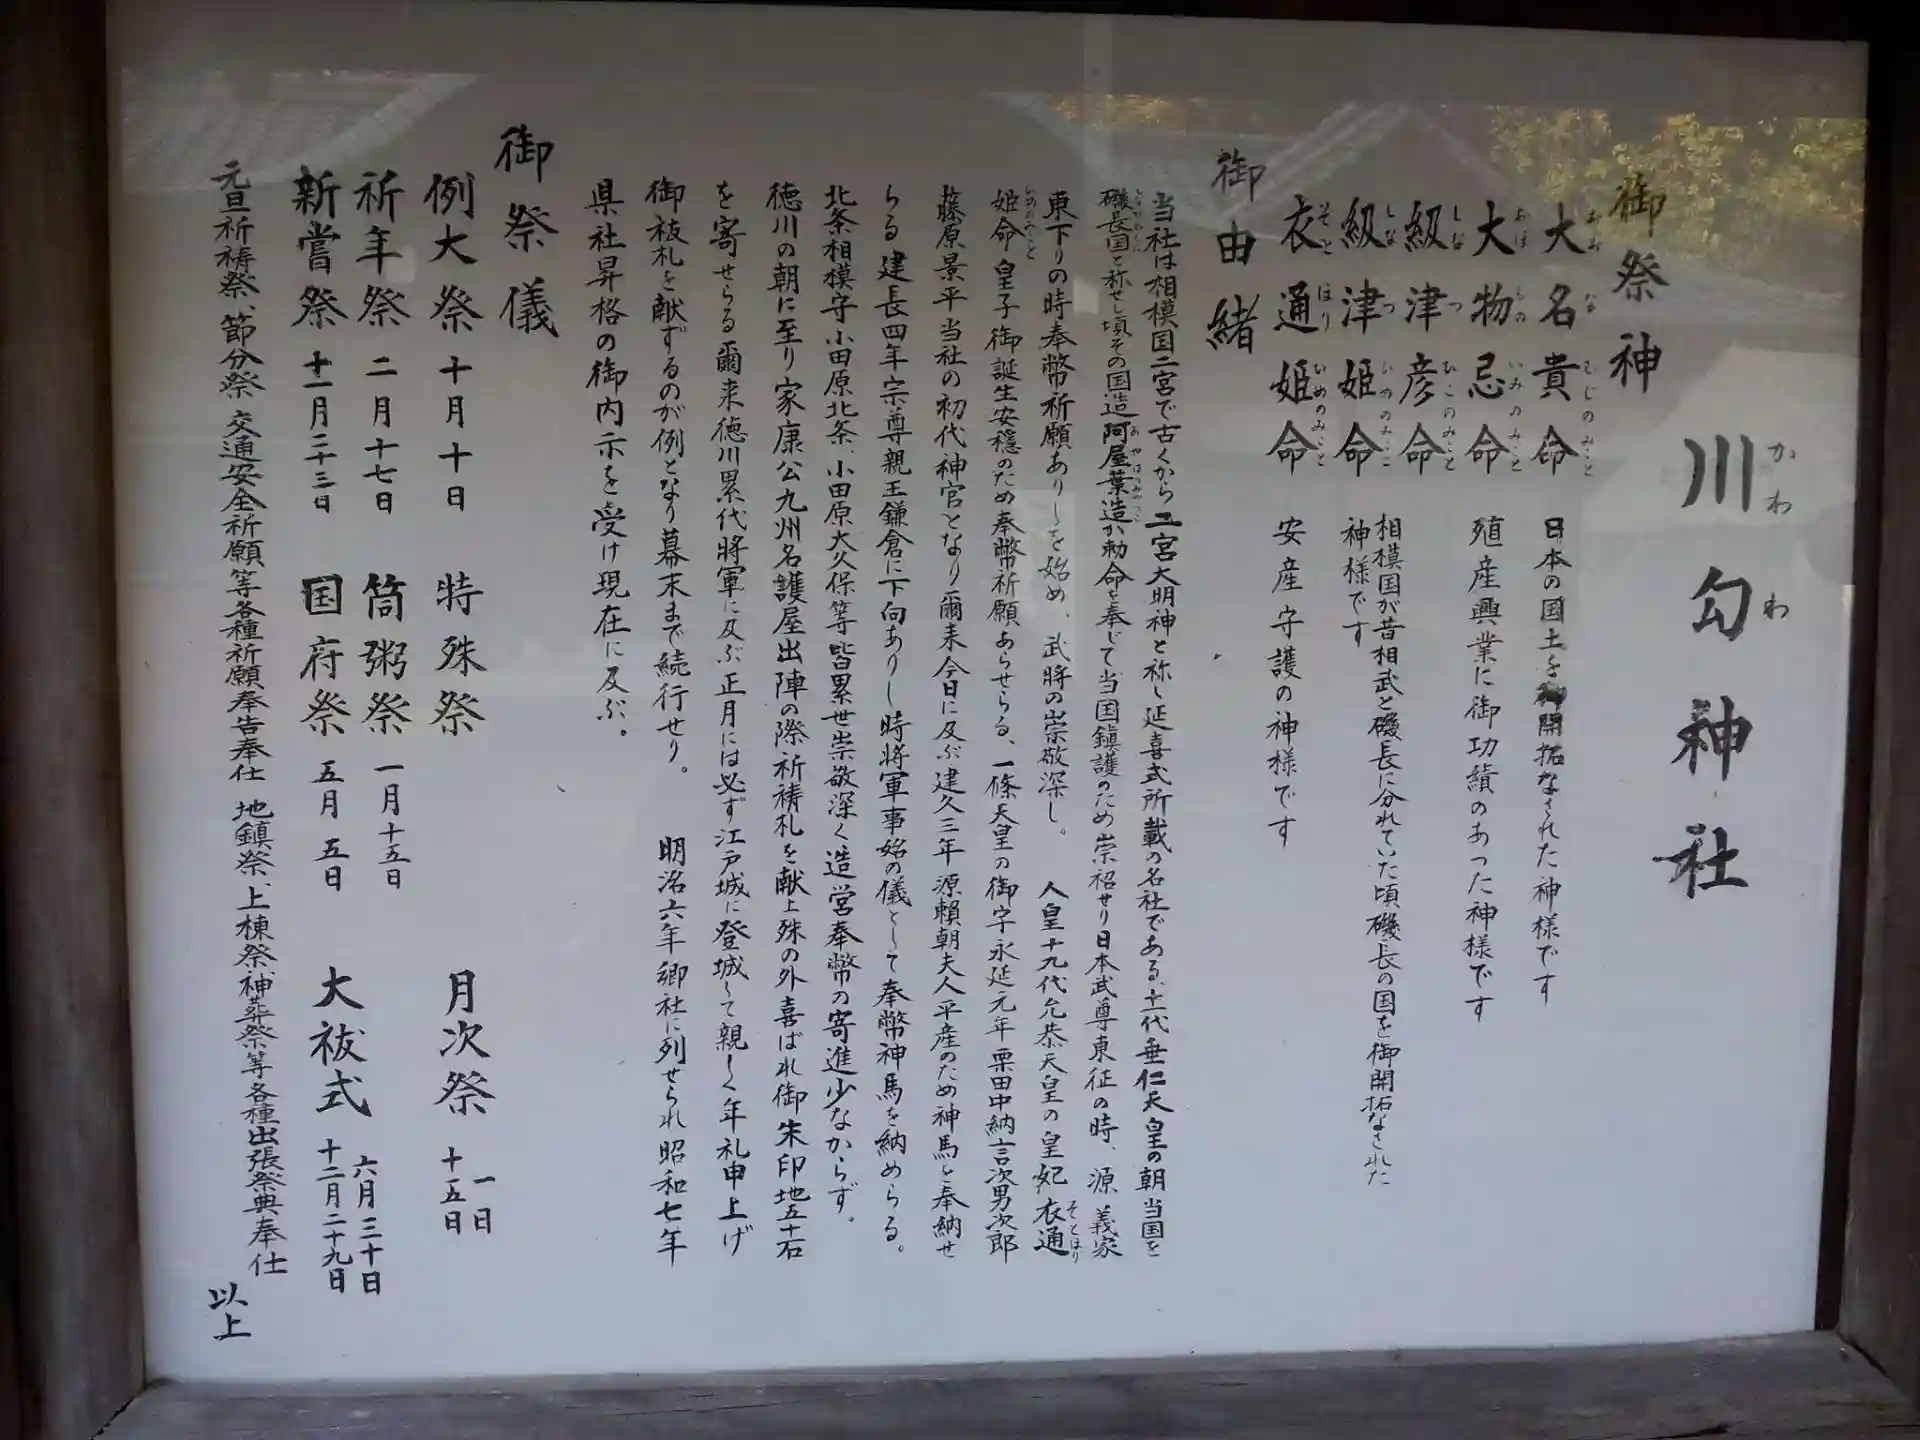 川勾神社
かわわ
御祭神
大名貴命
おおなむじのみこと
日本の国土を御開拓なされた神様です
大物忌命
おほものいみのみこと
殖産興業に御功績のあった神様です
級津彦命
しなつひこのみこと
級津姫命
しなつひめのみこと
相模国が昔相武と磯長に分れていた頃磯長の国を御開拓なされた
神様です
衣通姫命
そとほりひめのみこと
安産守護の神様です
御由緒
当社は相模国二宮で古くから二宮大明神と称し延喜式所載の名社である、十一代垂仁天皇の朝当国を
磯長国と称せし頃その国造阿屋葉造が勅命を奉じて当国鎮護のため崇祀せり日本武尊東征の時、源義家
東下りの時奉幣祈願ありしを始め、武将の崇敬深し。 人皇十九代允恭天皇の皇妃衣通
そとほり
姫命皇子御誕生安穏のため奉幣祈願あらせらる、一條天皇の御宇永延元年粟田中納言次男次郎
ひめのみこと
藤原景平当社の初代神官となり爾来今日に及ぶ建久三年源頼朝夫人平産のため神馬を奉納せ
らる 建長四年宗尊親王鎌倉に下向ありし時将軍事始の儀として奉幣神馬を納めらる。
北条相模守小田原北条、小田原大久保等皆累世崇敬深く造営奉幣の寄進少なからず。
徳川の朝に至り家康公九州名護屋出陣の際祈祷札を献上殊の外喜ばれ御朱印地五十石
を寄せらる爾来徳川累代将軍に及ぶ正月には必ず江戸城に登城して親しく年礼申上げ
御祓札を献ずるのが例となり幕末まで続行せり。 明治六年郷社に列せられ昭和七年
県社昇格の御内示を受け現在に及ぶ。
御祭儀
例大祭 十月十日 特殊祭 月次祭 一日 十五日
祈年祭 二月十七日 筒粥祭 一月十五日
新嘗祭 十一月二十三日 国府祭 五月五日 大祓式 六月三十日 十二月二十九日
元旦祈祷祭、節分祭 交通安全祈願等各種祈願奉告奉仕 地鎮祭、上棟祭、神葬祭等各種出張祭典奉仕
以上